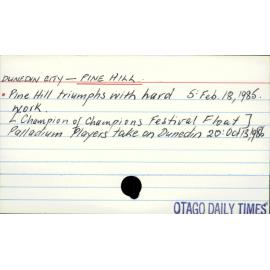 DUNEDIN CITY — PINE HILL.
• Pine Hill triumphs with hard 5: Feb. 18, 1986.
work.
[ Champion of Champions Festival Float ]
Palladium Players take on Dunedin 20: Oct 13, 1986
OTAGO DAILY TIMES